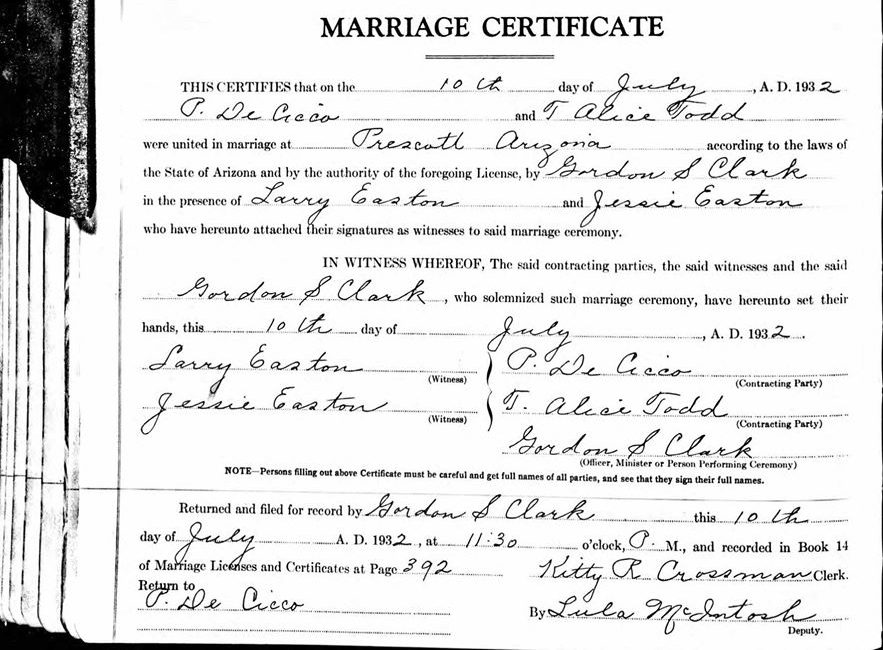 MARRIAGE CERTIFICATE
THIS CERTIFIES that on the 10th day of July, A. D. 1932
P. De Cicco and T Alice Todd
were united in marriage at Prescott Arizona according to the laws of
the State of Arizona and by the authority of the foregoing License, by Gordon S Clark
in the presence of Larry Easton and Jessie Easton
who have hereunto attached their signatures as witnesses to said marriage ceremony.
IN WITNESS WHEREOF, The said contracting parties, the said witnesses and the said
Gordon S Clark, who solemnized such marriage ceremony, have hereunto set their
hands, this 10th day of July, A. D. 1932.
Larry Easton P. De Cicco
(Witness) (Contracting Party)
Jessie Easton T. Alice Todd
(Witness) (Contracting Party)
Gordon S Clark
(Officer, Minister or Person Performing Ceremony)
NOTE—Persons filling out above Certificate must be careful and get full names of all parties, and see that they sign their full names.
Returned and filed for record by Gordon S Clark this 10th
day of July A. D. 1932, at 11:30 o'clock, P. M., and recorded in Book 14
of Marriage Licenses and Certificates at Page 392 Kitty R Crossman Clerk.
Return to
P. De Cicco By Lula McIntosh
Deputy.